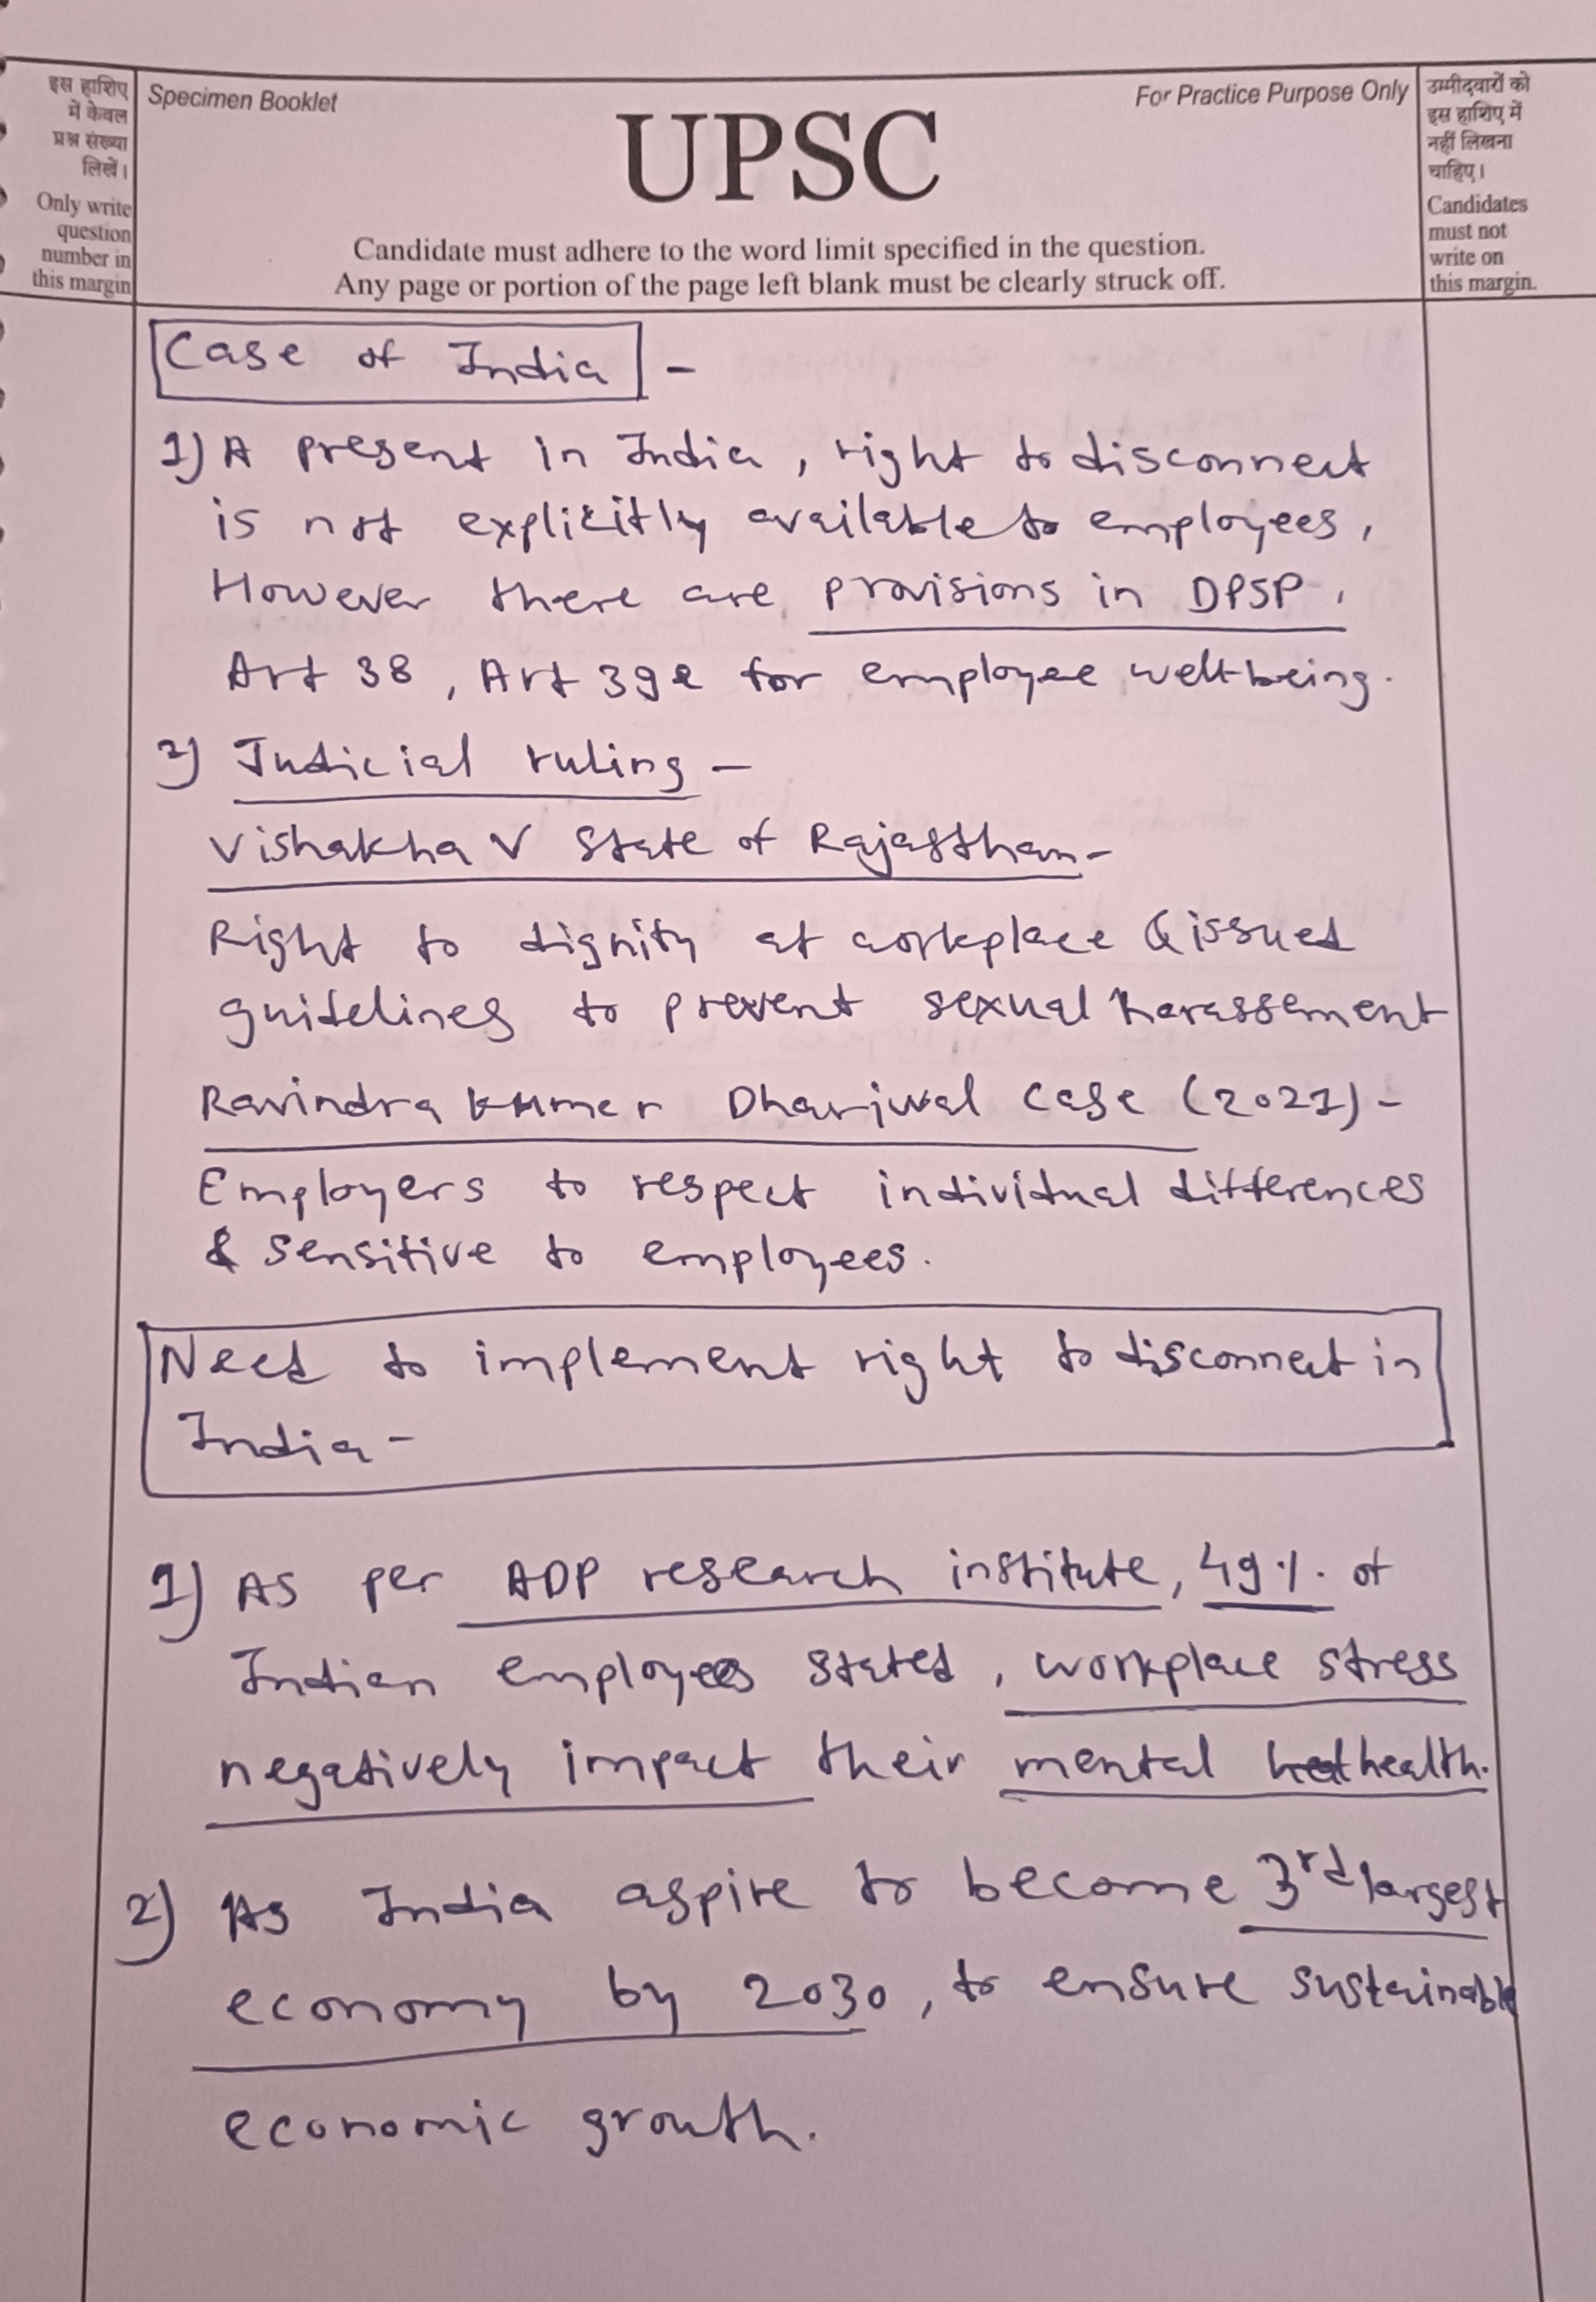 इस हाशिए
में केवल
प्रश्न संख्या
लिखें।
Only write
question
number in
this margin
Specimen Booklet
For Practice Purpose Only
UPSC
Candidate must adhere to the word limit specified in the question.
Any page or portion of the page left blank must be clearly struck off.
उम्मीदवारों को
इस हाशिए में
नहीं लिखना
चाहिए।
Candidates
must not
write on
this margin.
Case of India -
1) A present in India, right to disconnect
is not explicitly available to employees,
However there are provisions in DPSP,
Art 38, Art 39e for employee well-being.
2) Judicial ruling -
Vishakha V State of Rajasthan-
Right to dignity at workplace & issued
guidelines to prevent sexual harassement
Ravindra kumar Dhariwal case (2021) -
Employers to respect individual differences
& sensitive to employees.
Need to implement right to disconnect in
India -
1) As per ADP research institute, 49%. of
Indian employees stated, workplace stress
negatively impact their mental health.
2) As India aspire to become 3rd largest
economy by 2030, to ensure sustainable
economic growth.